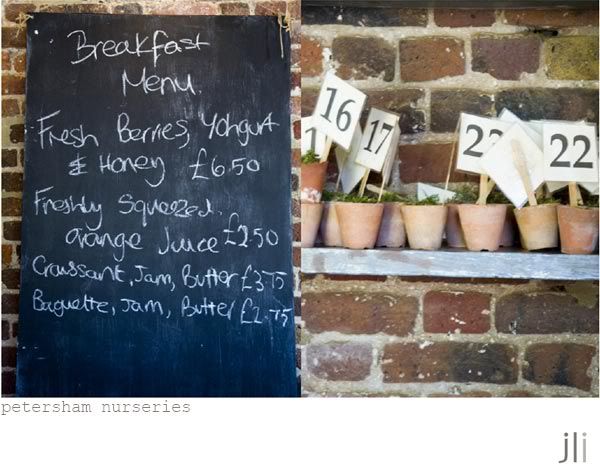 Breakfast
Menu.
Fresh Berries, Yohgurt
& Honey £6.50
Freshly Squeezed.
orange Juice £2.50
Croissant, Jam, Butter £3.75
Baguette, Jam, Butter £2.75
16
17
22
22
petersham nurseries
jli